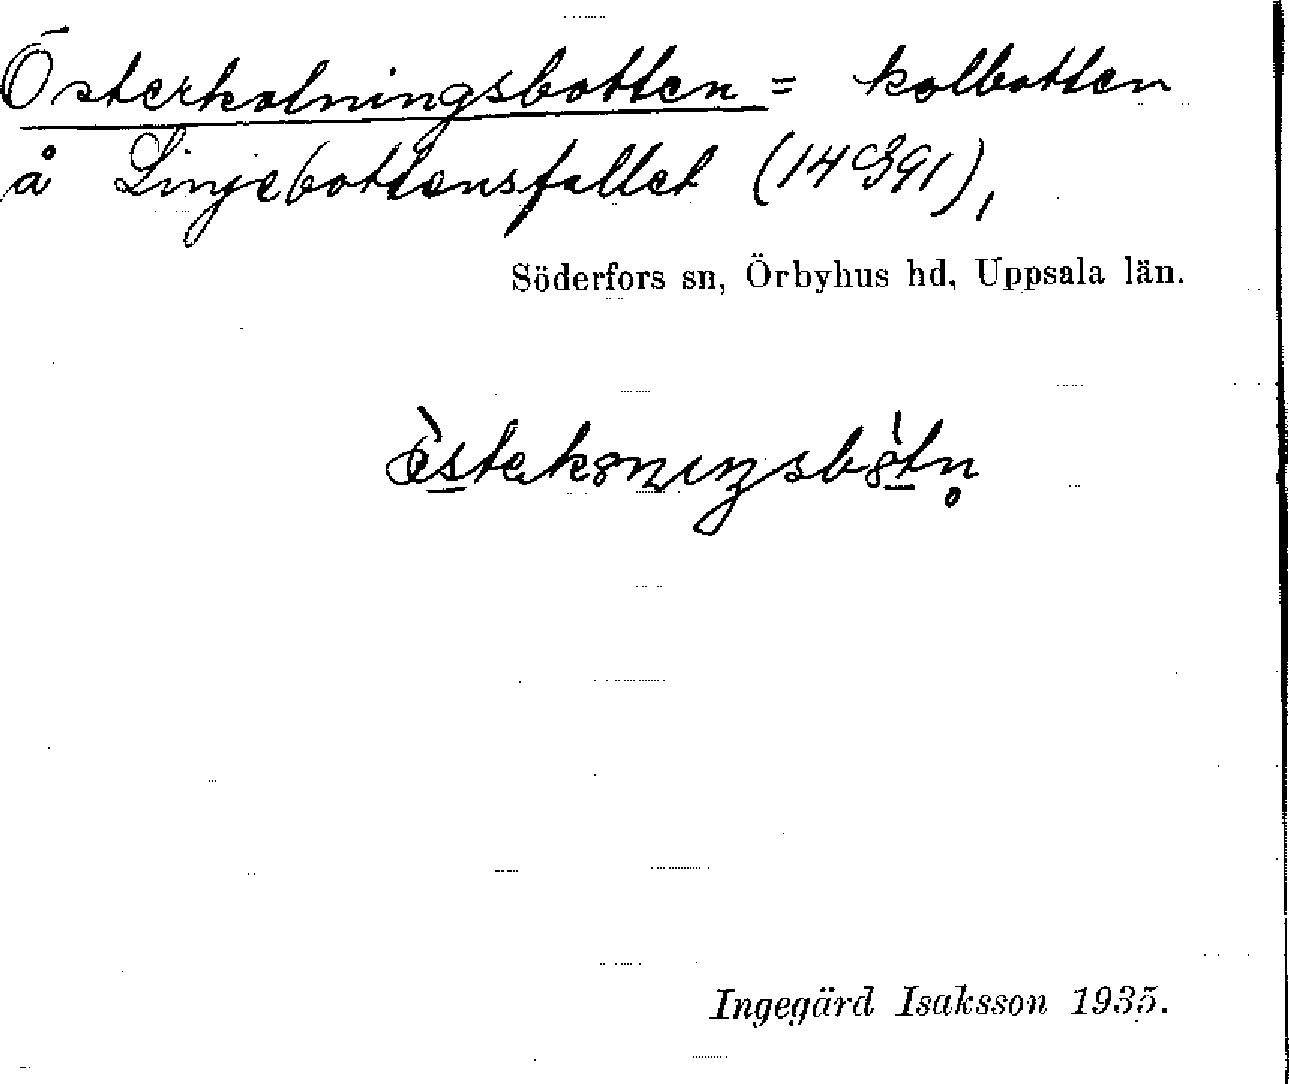 Österkolningsbotten = kolbotten
å Linjebottensfallet (14 C 391),
Söderfors sn, Örbyhus hd, Uppsala län.
Ingegärd Isaksson 1935.